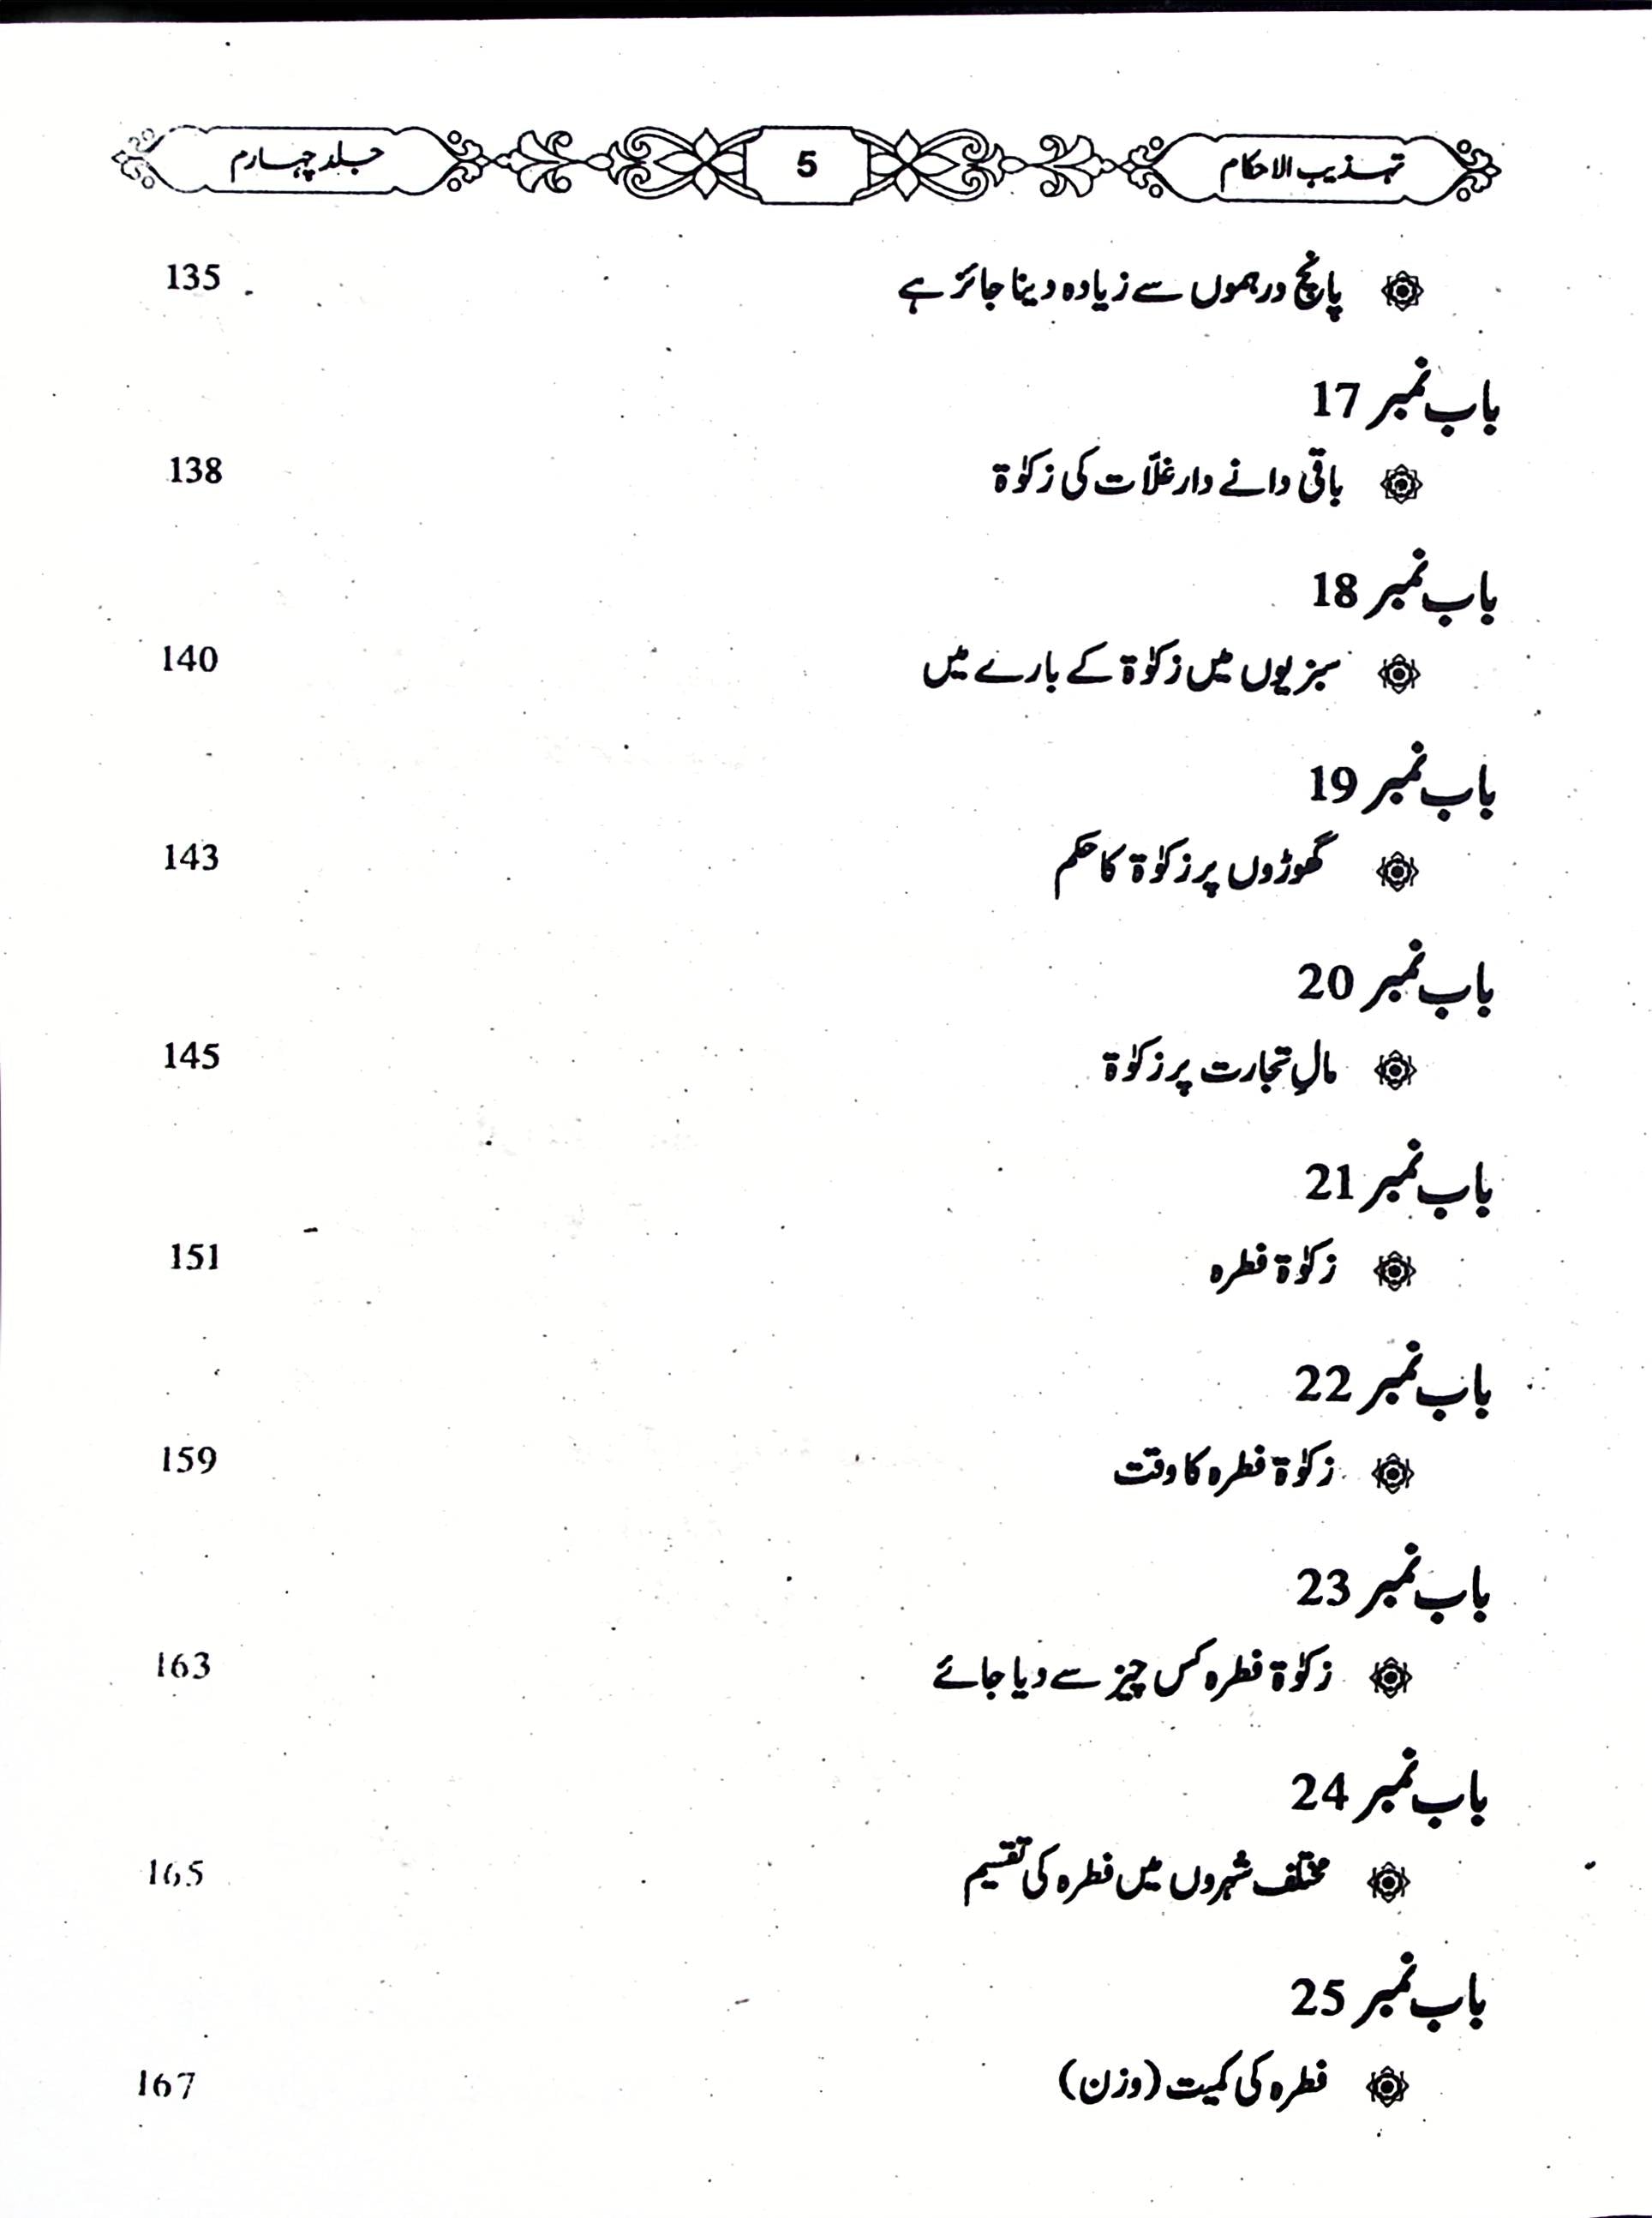 تہذیب الاحکام 5 جلد چہارم
پانچ درہموں سے زیادہ دینا جائز ہے 135
باب نمبر 17
باقی دانے دار غلاّت کی زکوٰۃ 138
باب نمبر 18
سبزیوں میں زکوٰۃ کے بارے میں 140
باب نمبر 19
گھوڑوں پر زکوٰۃ کا حکم 143
باب نمبر 20
مالِ تجارت پر زکوٰۃ 145
باب نمبر 21
زکوٰۃ فطرہ 151
باب نمبر 22
زکوٰۃ فطرہ کا وقت 159
باب نمبر 23
زکوٰۃ فطرہ کس چیز سے دیا جائے 163
باب نمبر 24
مختلف شہروں میں فطرہ کی تقسیم 165
باب نمبر 25
فطرہ کی کمیت (وزن) 167